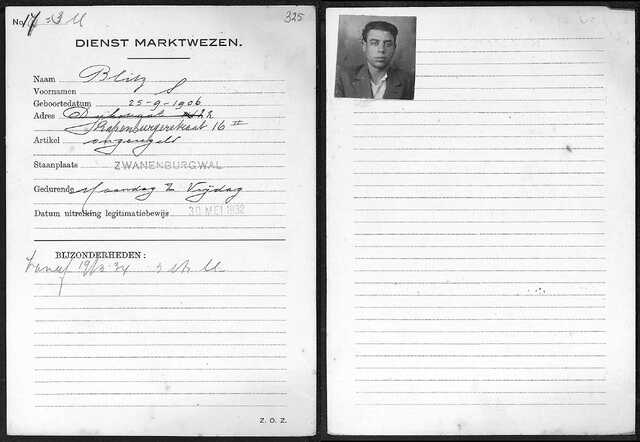 No 17 = 3 M 325
DIENST MARKTWEZEN.
Naam Blitz
Voornamen S
Geboortedatum 25-9-1906
Adres
Rapenburgerstraat 16 II
Artikel ongeregeld
Staanplaats ZWANENBURGWAL
Gedurende Maandag t/m Vrijdag
Datum uitreiking legitimatiebewijs 30 MEI 1932
BIJZONDERHEDEN:
Vanaf 19/3-34 3 M
Z. O. Z.